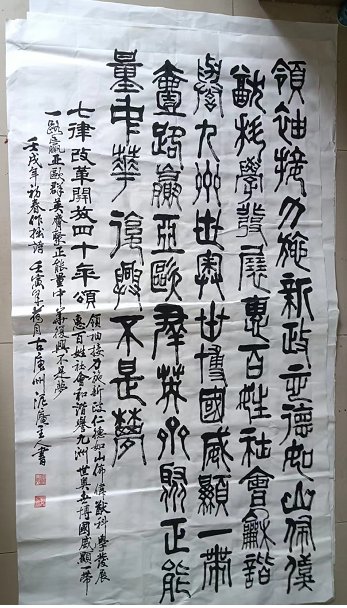 領袖接力施新政仁德如山佩偉
猷科學發展惠百姓社會龢諧
譽九州世奧世博國威顯一帶
壹路贏亞歐群英齊聚正能
量中華復興不是夢
七律改革開放四十年頌
領袖接力施新政仁德如山佩偉猷科學發展
惠百姓社會和諧譽九洲世奧世博國威顯一帶
一路贏亞歐群英齊聚正能量中華復興不是夢
戌年初春作拙詩 壬寅年 月古唐州 人書